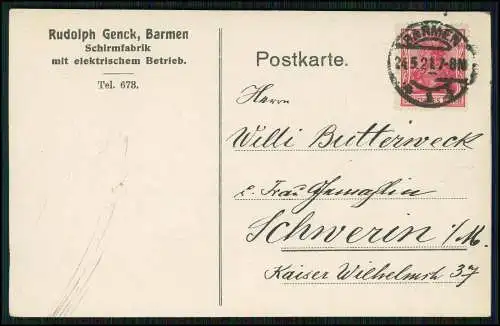 Rudolph Genck, Barmen
Schirmfabrik
mit elektrischem Betrieb.
Tel. 673.
Postkarte.
BARMEN
24.5.21.7-8N
Herrn
Willi Butterweck
u. Frau Gemahlin
Schwerin i/M.
Kaiser Wilhelmstr 37